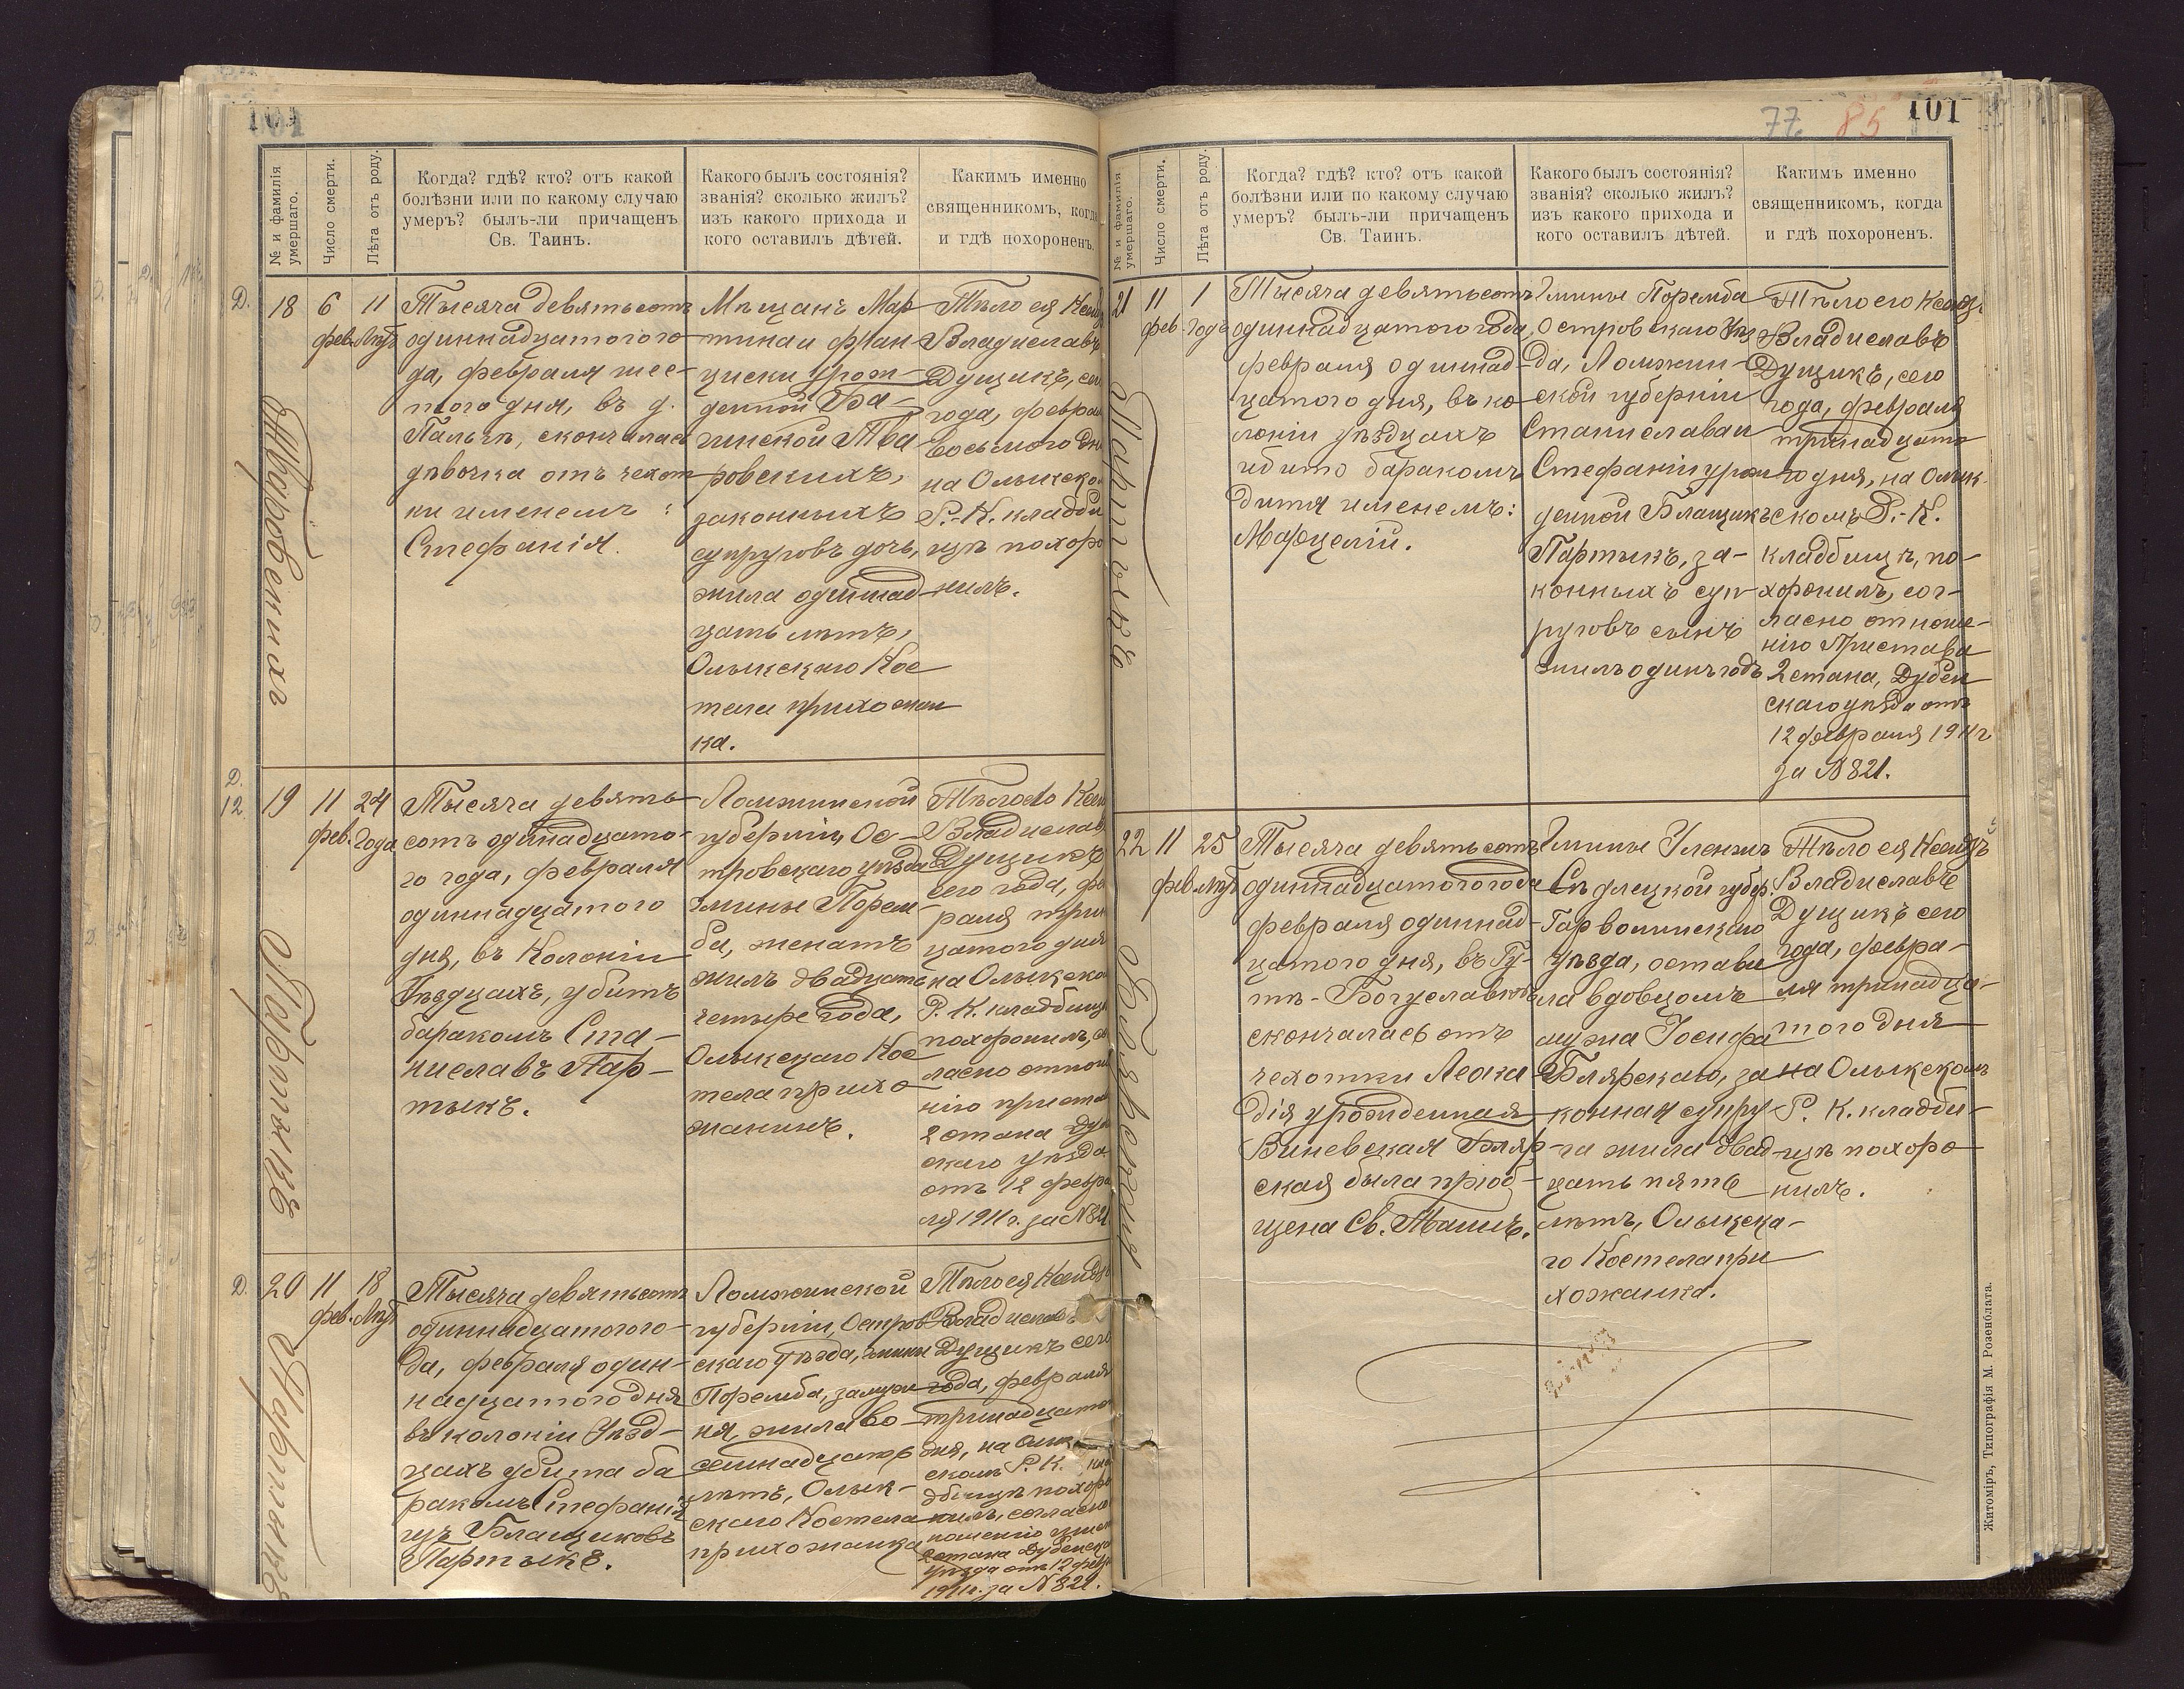 101
№ и фамилія умершаго.
Число смерти.
Лѣта отъ роду.
Когда? гдѣ? кто? отъ какой
болѣзни или по какому случаю
умеръ? былъ-ли причащенъ
Св. Таинъ.
Какого былъ состоянія?
званія? сколько жилъ?
изъ какого прихода и
кого оставилъ дѣтей.
Каким именно
священникомъ, когда
и гдѣ похороненъ.
Д.
18
6
фев.
11
Лѣтъ
Тысяча девятьсотъ
одиннадцатого го-
да, февраля шес-
того дня, въ д.
скончалась
дѣвочка отъ чахот
ки именемъ:
Стефанія.
Мѣщанъ Мар
тина и Фран
циски урож-
денной
законныхъ
супруговъ дочь,
жила одиннад-
цать лѣтъ,
Олыкскаго Кос
тела прихожан
ка.
Тѣло ея Ксендз
Владиславъ
Дущикъ, сего
года, февраля
восьмого дня
на Олыкском
Р.-К. кладби
щѣ похоро
нилъ.
Д.
12
19
11
фев.
24
Года
Партыкъ
Тысяча девять
сотъ одинадцато-
го года, февраля
одиннадцатого
дня, въ Колоніи
Уѣздцахъ, убитъ
баракомъ Ста-
ниславъ Пар-
тыкъ.
Ломжинской
губерніи, Ос-
тровскаго уѣзда
гмины Порем-
ба, женатъ
жилъ двадцать
четыре года,
Олыкскаго Кос
тела прихо
жанинъ.
Тѣло его Ксен
Владислав
Дущикъ
сего года, фев
раля трин
цатого дня
на Олыкском
Р. К. кладбищѣ
похоронилъ, со
гласно отнош
нію приста
2 стана Дуб
скаго уѣзда
отъ 12 февра
ля 1911 г. за № 821.
Д.
20
11
фев.
18
Лѣтъ
Партыкъ
Тысяча девятьсотъ
одиннадцатого го-
да, февраля один-
надцатого дня
въ колоніи Уѣзд-
цахъ убита ба
ракомъ Стефанія
изъ Блащиковъ
Партыкъ.
Ломжинской
губерніи, Остров
скаго уѣзда, гмины
Поремба, замуж
няя, жила во-
семнадцать
лѣтъ, Олык-
скаго Костела
прихожанка
Тѣло ея Ксендзъ
Владиславъ
Дущикъ сего
года, февраля
тринадцато
дня, на Олык
скомъ Р. К. кла
дбищѣ похоро
нилъ, согласно
ношенію приста
2 стана Дубенска
уѣзда отъ 12 февр
1911 г. за № 821.
77.
85
101
№ и фамилія умершаго.
Число смерти.
Лѣта отъ роду.
Когда? гдѣ? кто? отъ какой
болѣзни или по какому случаю
умеръ? былъ-ли причащенъ
Св. Таинъ.
Какого былъ состоянія?
званія? сколько жилъ?
изъ какого прихода и
кого оставилъ дѣтей.
Каким именно
священникомъ, когда
и гдѣ похороненъ.
21
11
фев.
1
Годъ
Партыкъ
Тысяча девятьсотъ
одиннадцатого года,
февраля одиннад-
цатого дня, въ ко-
лоніи Уѣздцахъ
убито баракомъ
дитя именемъ:
Марцелій.
Гмины Поремба
Островскаго Уѣз
да, Ломжин-
ской губерніи
Станислава и
Стефаніи урож
денной Блащикъ
Партыкъ, за-
конныхъ суп-
руговъ сынъ
жилъ одинъ годъ
Тѣло его Ксендз
Владиславъ
Дущикъ, сего
года, февраля
тринадцато
го дня, на Олык-
скомъ Р.-К.
кладбищѣ, по-
хоронилъ, сог-
ласно отноше-
нію Пристава
2 стана, Дубен
скаго уѣзда отъ
12 февраля 1911 г
за № 821.
22
11
фев.
25
лѣтъ
Бляр
Тысяча девятьсотъ
одиннадцатого года
февраля одиннад-
цатого дня, въ Гу-
тѣ-Богуславской
скончалась отъ
чахотки Леока-
дія урожденная
Виневская Бляр-
ская была пріоб-
щена Св. Таинъ.
Гмины Уленжъ
Сѣдлецкой губер.
Гарволинскаго
Уѣзда, остави
ла вдовцомъ
мужа Іосифа
Блярскаго, за
конная супру
га жила двад
цать пять
лѣтъ, Олыкска-
го Костела при
хожанка.
Тѣло ея Ксендзъ
Владиславъ
Дущикъ сего
года, февра-
ля тринадца-
того дня
на Олыкскомъ
Р. К. кладби-
щѣ похоро
нилъ.
Житоміръ, Типографія М. Розенблата.